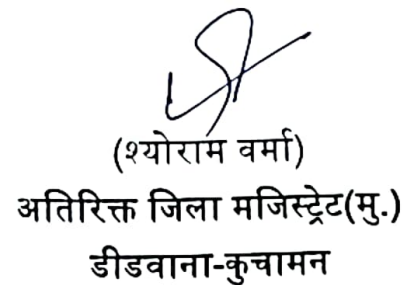 (श्योराम वर्मा)
अतिरिक्त जिला मजिस्ट्रेट(मु.)
डीडवाना-कुचामन